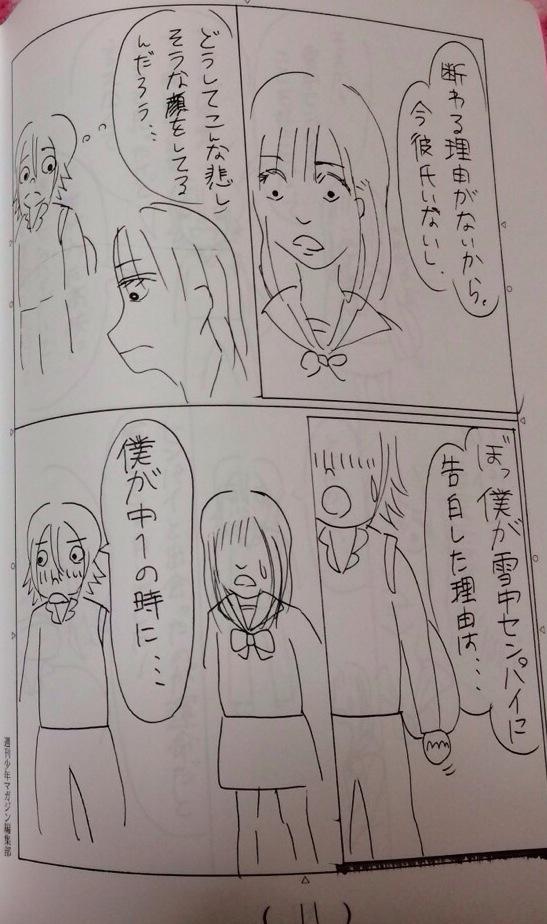 断わる理由がないから。
今彼氏いないし、
どうしてこんな悲し
そうな顔をしてる
んだろう…
ぼっ僕が雪中センパイに
告白した理由は…
僕が中1の時に…
週刊少年マガジン編集部
(11)